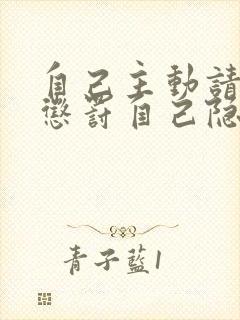 自己主動請
懲罰自己隐
青子藍1